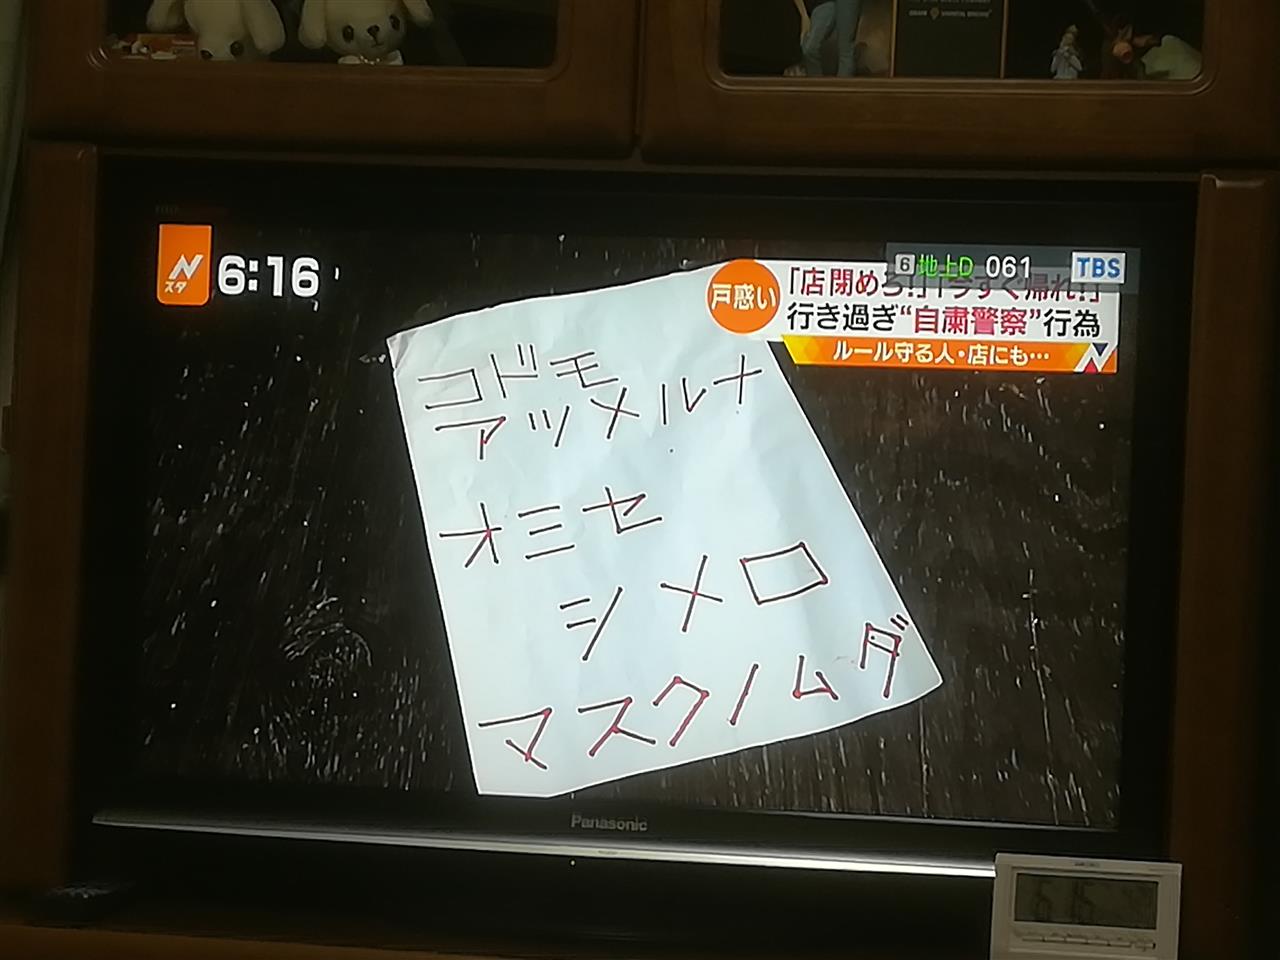 Nスタ
6:16
6 地上D 061
TBS
戸惑い
「店閉めろ!」「今すぐ帰れ!」
行き過ぎ“自粛警察”行為
ルール守る人・店にも…
コドモ
アツメルナ
オミセ
シメロ
マスクノムダ
Panasonic